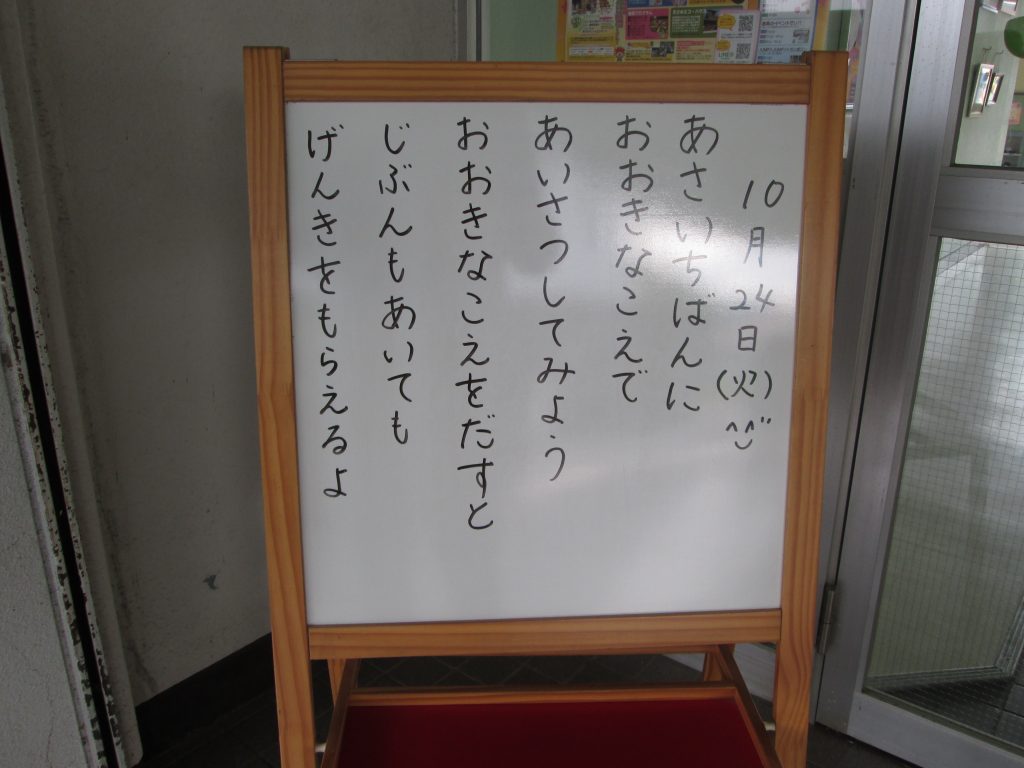 10月24日(火)^^
あさいちばんに
おおきなこえで
あいさつしてみよう
おおきなこえをだすと
じぶんもあいても
げんきをもらえるよ